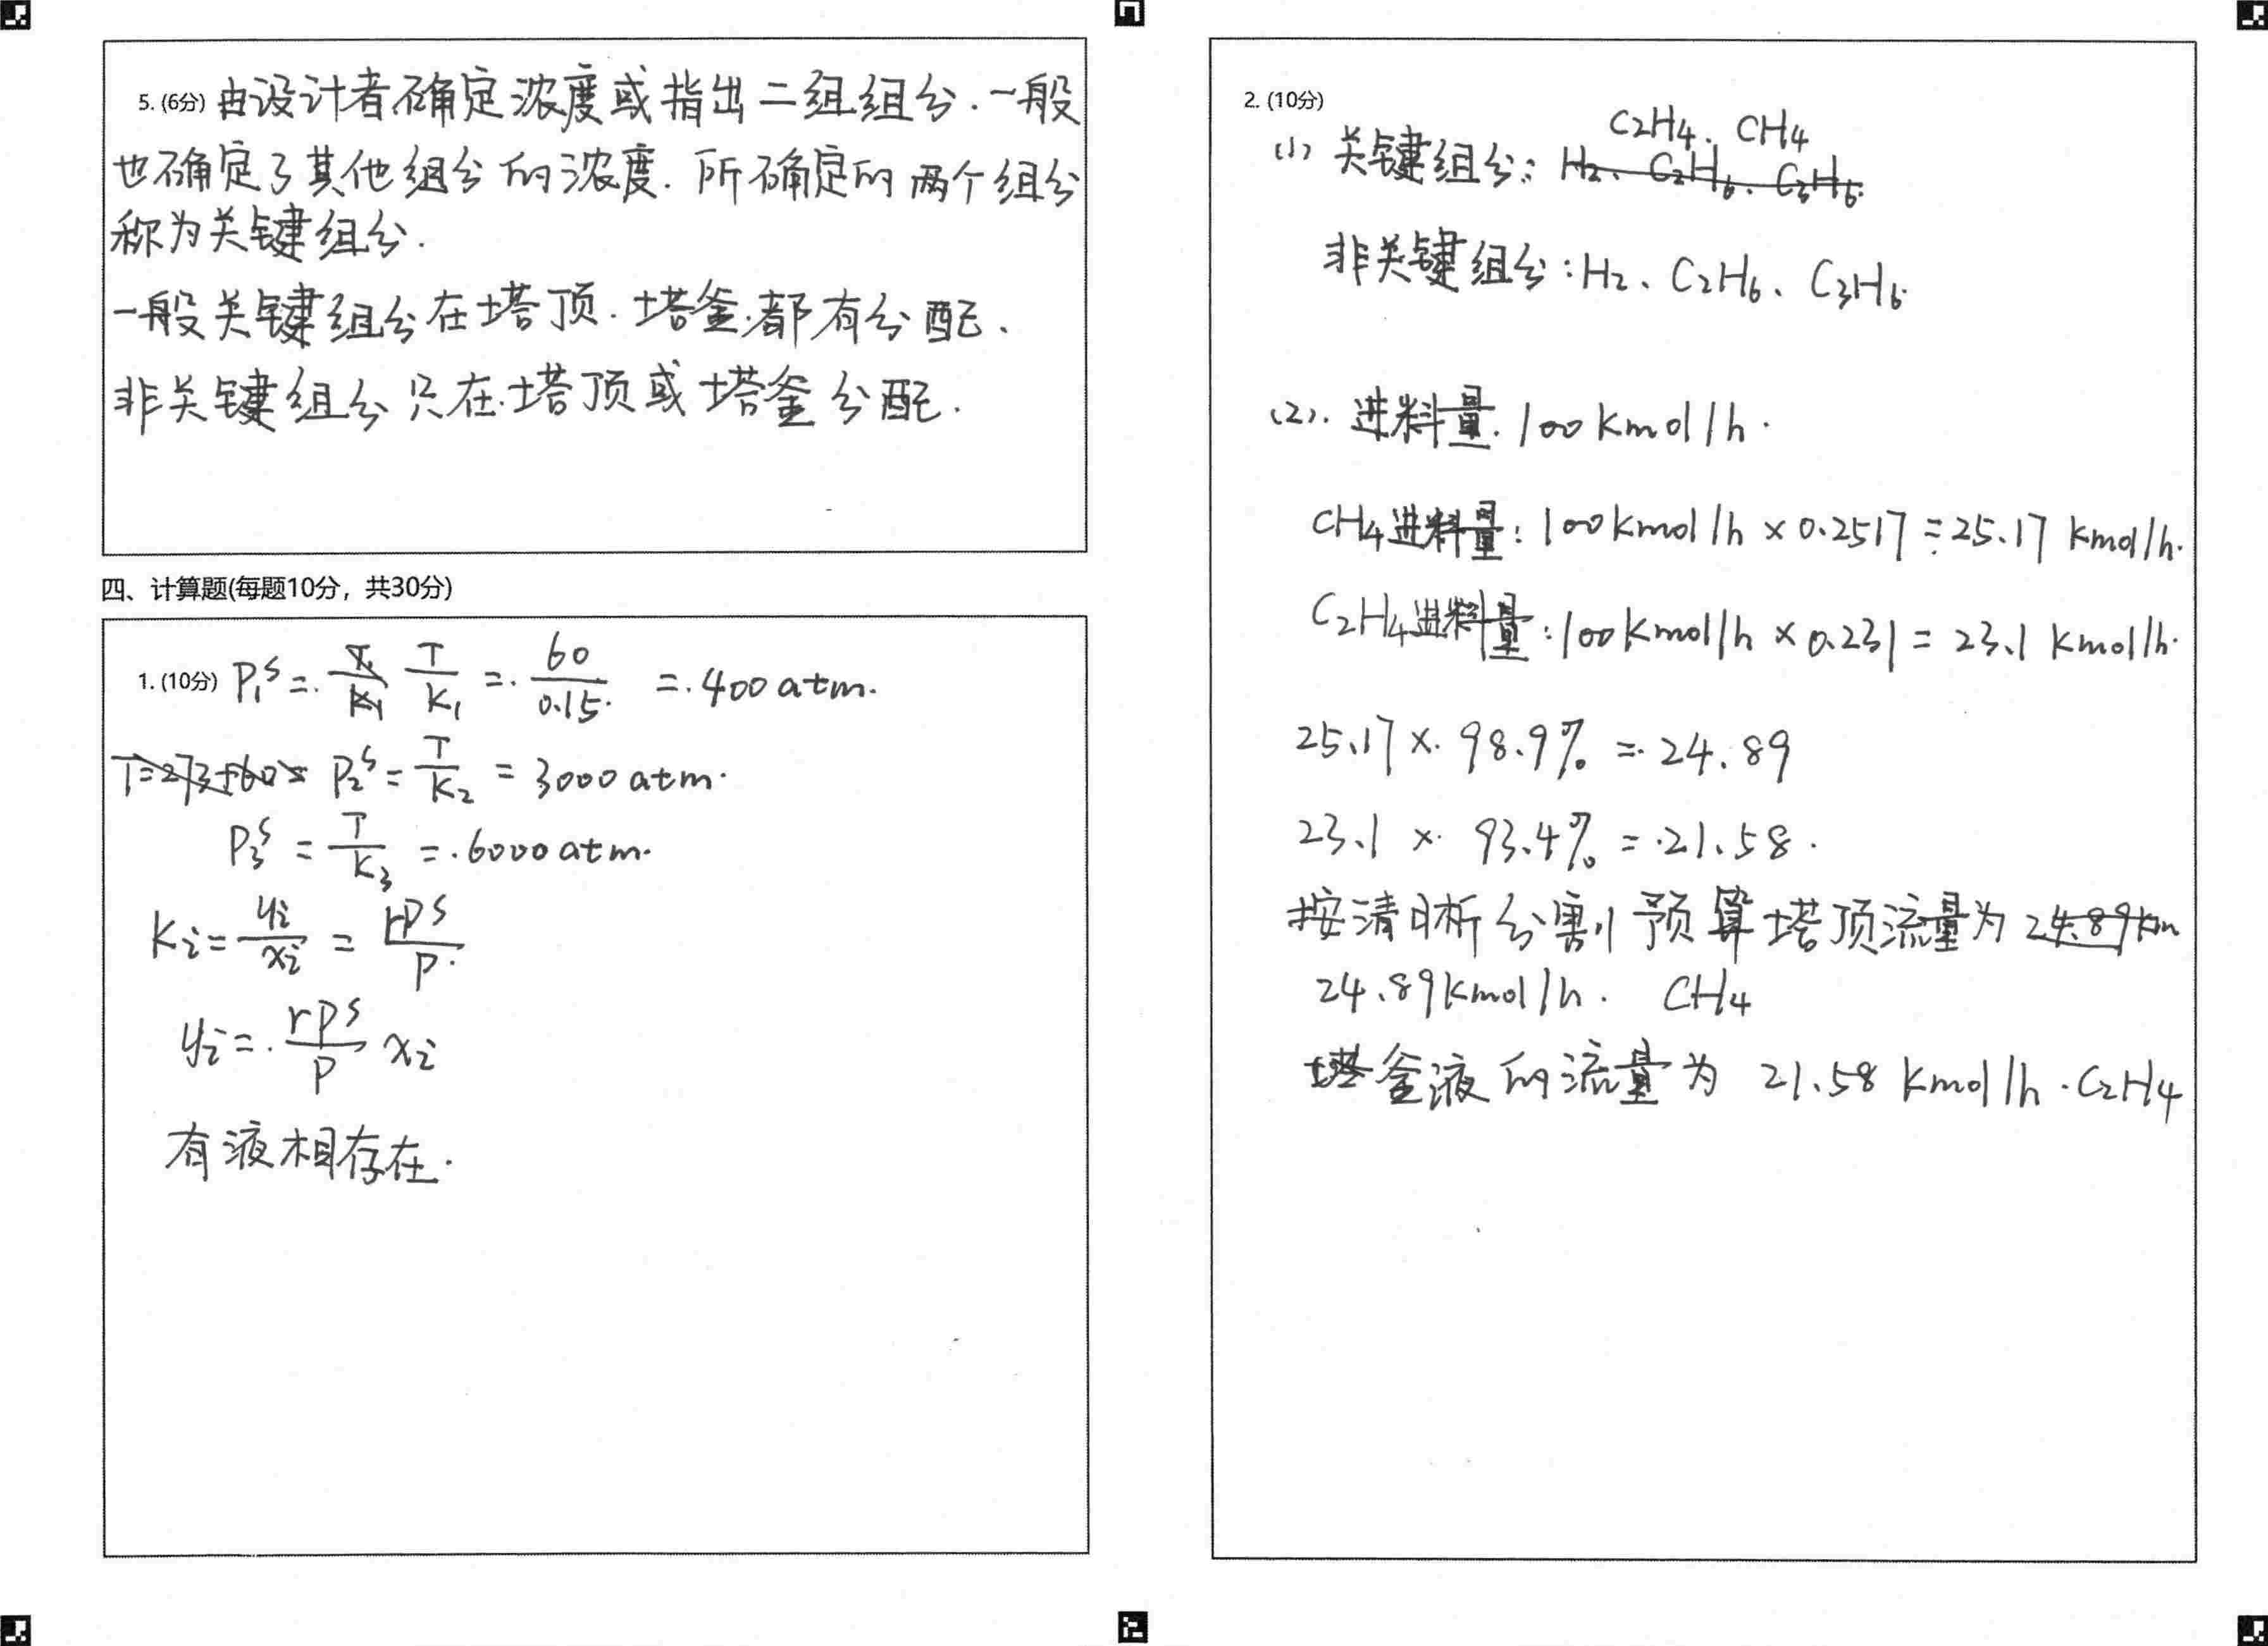 5. (6分) 由设计者确定浓度或指出二组组分.一般
也确定了其他组分的浓度.所确定的两个组分
称为关键组分.
一般关键组分在塔顶.塔釜.都有分配、
非关键组分只在塔顶或塔釜分配.
四、计算题(每题10分，共30分)
1. (10分) P₁ˢ = T/K₁ = 60/0.15 = 400 atm.
T=273+60= P₂ˢ = T/K₂ = 3000 atm.
P₃ˢ = T/K₃ = 6000 atm.
Ki = yi/xi = rPˢ/P.
yi = rPˢ/P xi
有液相存在.
2. (10分)
C2H4、CH4
(1) 关键组分: H2、C2H6、C3H6.
非关键组分:H2、C2H6、C3H6.
(2). 进料量. 100 kmol/h.
CH4进料量: 100kmol/h × 0.2517 = 25.17 kmol/h.
C2H4进料量: 100kmol/h × 0.231 = 23.1 kmol/h.
25.17 × 98.9% = 24.89
23.1 × 93.4% = 21.58.
按清晰分割预算塔顶流量为 24.89km
24.89kmol/h. CH4
塔釜液的流量为 21.58 kmol/h. C2H4